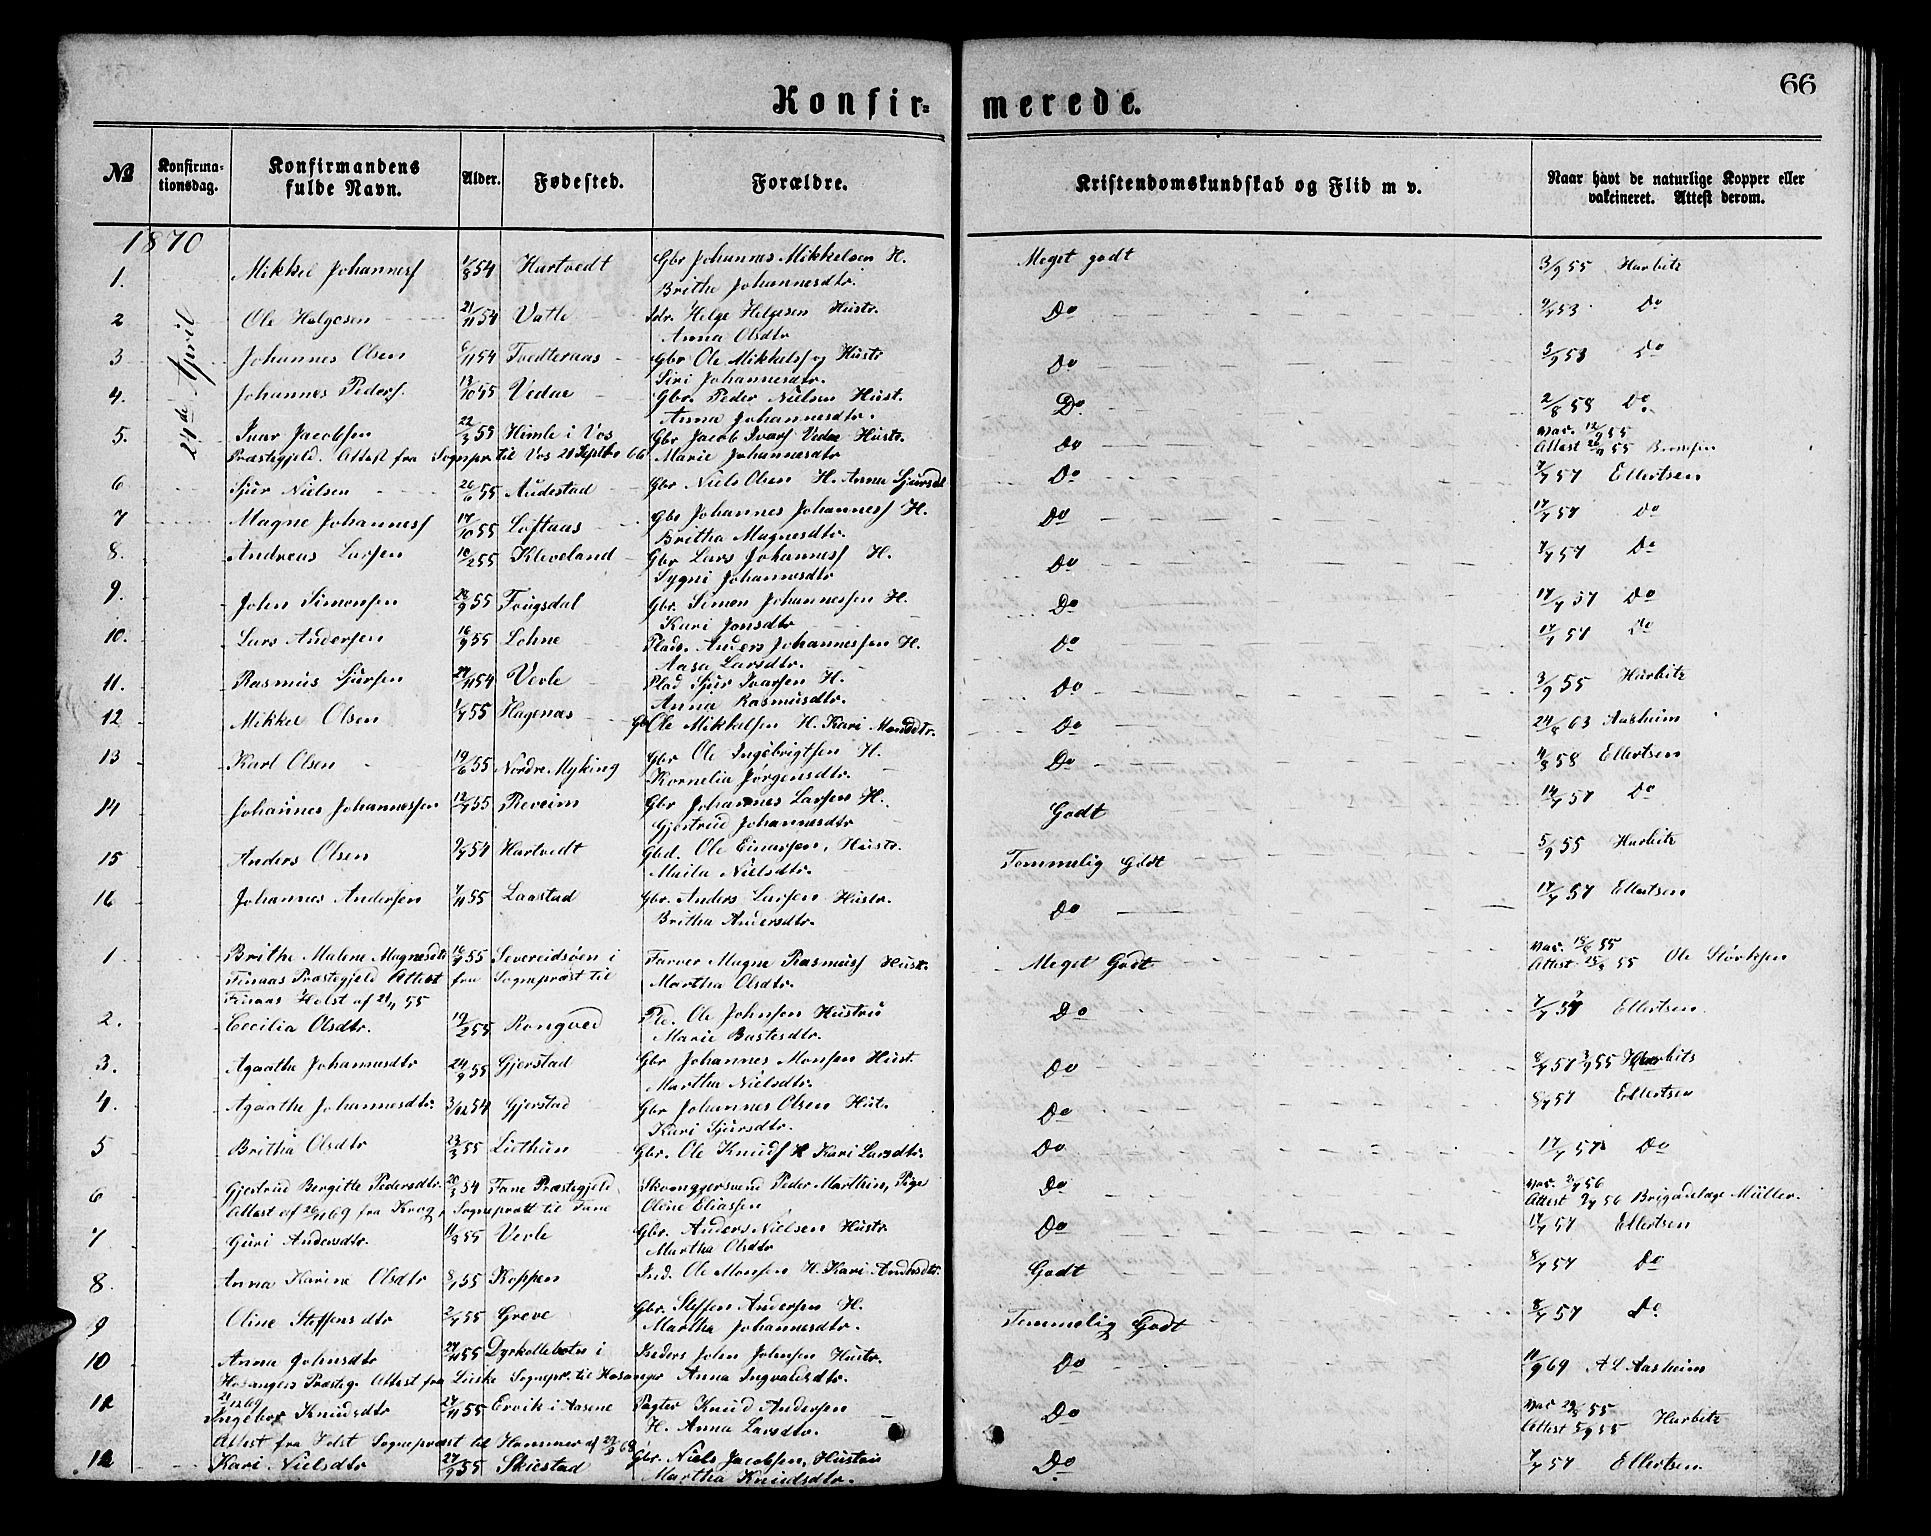 66
Konfir= merede.
№ Konfirma- tionsdag. Konfirmandens fulde Navn. Alder. Fødested. Forældre. Kristendomskundskab og Flid m v. Naar havt de naturlige Kopper eller vakcineret. Attest derom.
1870
24de April
1. Mikkel Johannesf 1/8 54 Hartvedt Gbr Johannes Mikkelsen H. Meget godt 3/9 55 Harbitz
Brithe Johannesdtr.
2 Ole Helgesen 21/11 54 Vatle Helge Helgesen Hustr. Do 53 Do
Anna Olsdtr
3 Johannes Olsen 54 Tvedteraas Gbr Ole Mikkelsf og Hustr Do 53 Do
Siri Johannesdtr.
4. Johannes Pedersf. 13/10 55 Vedae Gbr. Peder Nielsen Hust. Do 2/8 58 Do.
Anna Johannesdtr.
5. Ivar Jacobsen 22/3 55 Himle i Vos Gbr Jacob Ivarsf Vedae Hustr. Do Vac. 12/9 55
Præstegjeld. Attest fra Sognepr. til Vos 21 Septbr 66 Marie Johannesdtr Attest 55
6 Sjur Nielsen 26/6 55 Audestad Gbr Niels Olsen H. Anna Sjursd Do 7/7 57 Ellertsen
7 Magne Johannesf 17/10 55 Loftaas Gbr Johannes Johannesf H. Do 17/7 57 Do
Britha Magnesdtr
8. Andreas Larsen 10/2 55 Kleveland Gbr Lars Johannesf H. Do 7/7 57 Do
Sygni Johannesdtr
9. John Simonsen 55 Fougsdal Gbr. Simon Johannessen H. Do 17/7 57 Do
Kari Jonsdtr
10. Lars Andersen 16/9 55 Lohne Plads. Anders Johannessen H. Do 17/7 57 Do
Aasa Larsdtr.
11. Rasmus Sjursen 54 Verle Plad Sjur Ivarsen H. Do 3/9 55 Harbitz
Anna Rasmusdtr.
12 Mikkel Olsen 1/7 55 Hagenæs Gbr Ole Mikkelsen H. Kari Monsdtr. Do 24/8 63 Aasheim
13 Karl Olsen 19/6 55 Nordre Myking Gbr Ole Ingebrigtsen H. Do 4/8 58 Ellertsen
Kornelia Jörgensdtr.
14 Johannes Johannessen 12/7 55 Reveim Gbr Johannes Larsen H. Godt 14/7 57 Do
Gjertrud Johannesdtr
15 Anders Olsen 9/7 54 Hartvedt Gbd. Ole Einarsen, Hustr. Temmelig Godt 5/9 55 Harbitz
Maila Nielsdtr.
16 Johannes Andersen 7/11 55 Laastad Gbr. Anders Larsen Hustr. Do 17/7 57 Ellertsen
Britha Andersdtr.
1. Brithe Malene Magnesdtr 16/3 55 Severeidsöen i Farver Magne Rasmusf Hust. Meget Godt Vac. 15/6 55
Finaas Præstegjeld Attest fra Sognepræst til Martha Olsdtr. Attest 55 Ole Störksen
Finaas Holst af 55
2. Cecilia Olsdtr. 19/2 55 Rongved Pld. Ole Johnsen Hustru Do 7/7 57 Ellertsen
Marie Bastesdtr.
3. Agaathe Johannesdtr 24/9 55 Gjerstad Gbr Johannes Monsen Hust. Do 8/7 57 3/9 55 Harbitz
Martha Nielsdtr.
4. Agaathe Johannesdtr. 3/12 54 Gjerstad Gbr Johannes Olsen Hust. Do 8/7 57 Ellertsen
Kari Sjursdtr.
5 Britha Olsdtr 23/3 55 Liethun Gbr. Ole Knudsf H Kari Larsdtr. Do 17/7 57 Do
6 Gjertrud Bergitte Pedersdtr. 54 Fane Præstegjeld Skonnfersvend Peder Marthin, Pige Do Vac. 56
Attest af 69 fra Krog, Sognepræst til Fane Oline Eliassen Attest 56 Brigadelæge Müller.
7 Guri Andersdtr. 11/3 55 Verle Gbr. Anders Nielsen Hustr Do 17/7 57 Ellertsen
Martha Olsdtr
8. Anna Karine Olsdtr 8/7 55 Koppen Ind. Ole Monsen H. Kari Andersdtr. Godt 8/7 57 Do
9 Oline Steffensdtr 2/7 55 Greve Gbr. Steffen Andersen H. Temmelig Godt 8/7 57 Do
Martha Johannesdtr.
10 Anna Johnsdtr 55 Dyrkollebotn i John Johnsen Hustr. Do 11/9 69 A L Aasheim
Hosangers Præsteg. Attest fra Sognepr. til Hosanger Anna Ingvaldsdtr.
69
11 Ingebor Knudsdtr 24/11 55 Ervik i Aasene Pagter Knud Andersen Do Vac 29/5 55
H. Anna Larsdtr. Attest 55 Harbitz
Attest fra Holst Sognepræst til Hammer af 68
12 Kari Nielsdtr 55 Skiestad Gbr. Niels Jacobsen, Hustru Do 7/7 57 Ellertsen
Martha Knudsdtr.